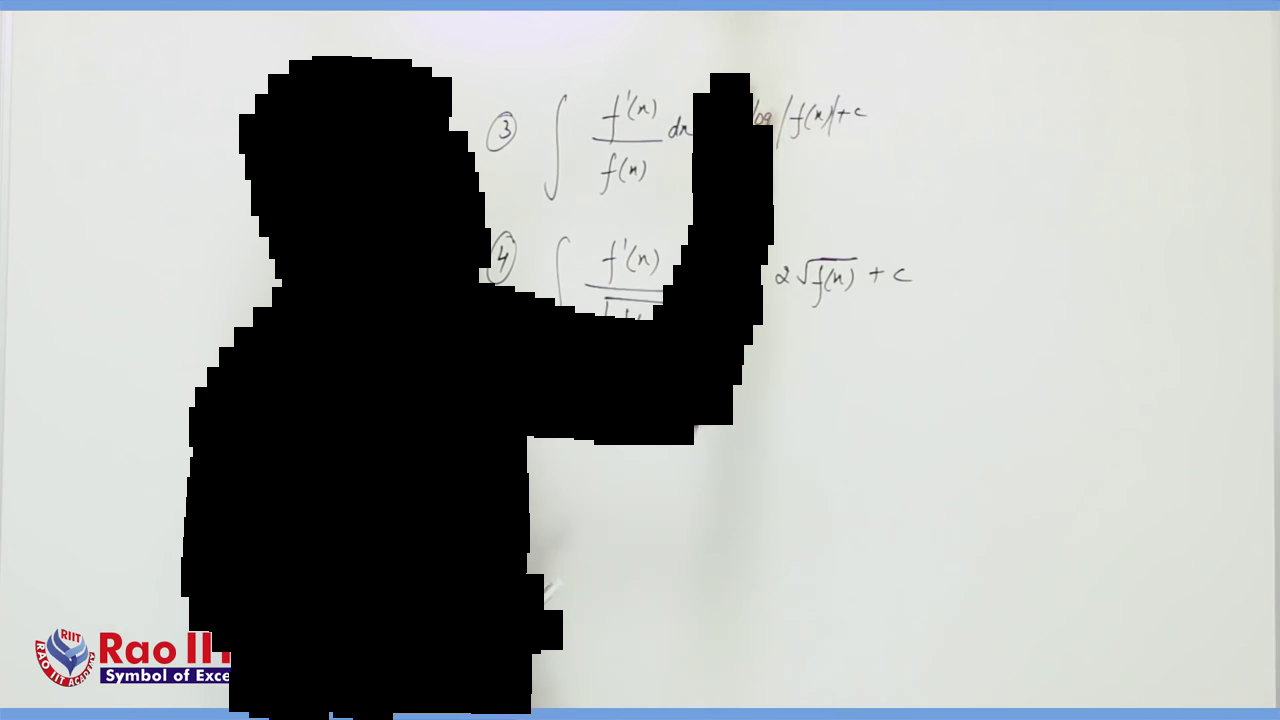 ③ ∫ f'(x) / f(x) dx log |f(x)| + c
④ ∫ f'(x) 2√f(x) + c
RIIT
RAO IIT ACADEMY
Rao II
Symbol of Exce